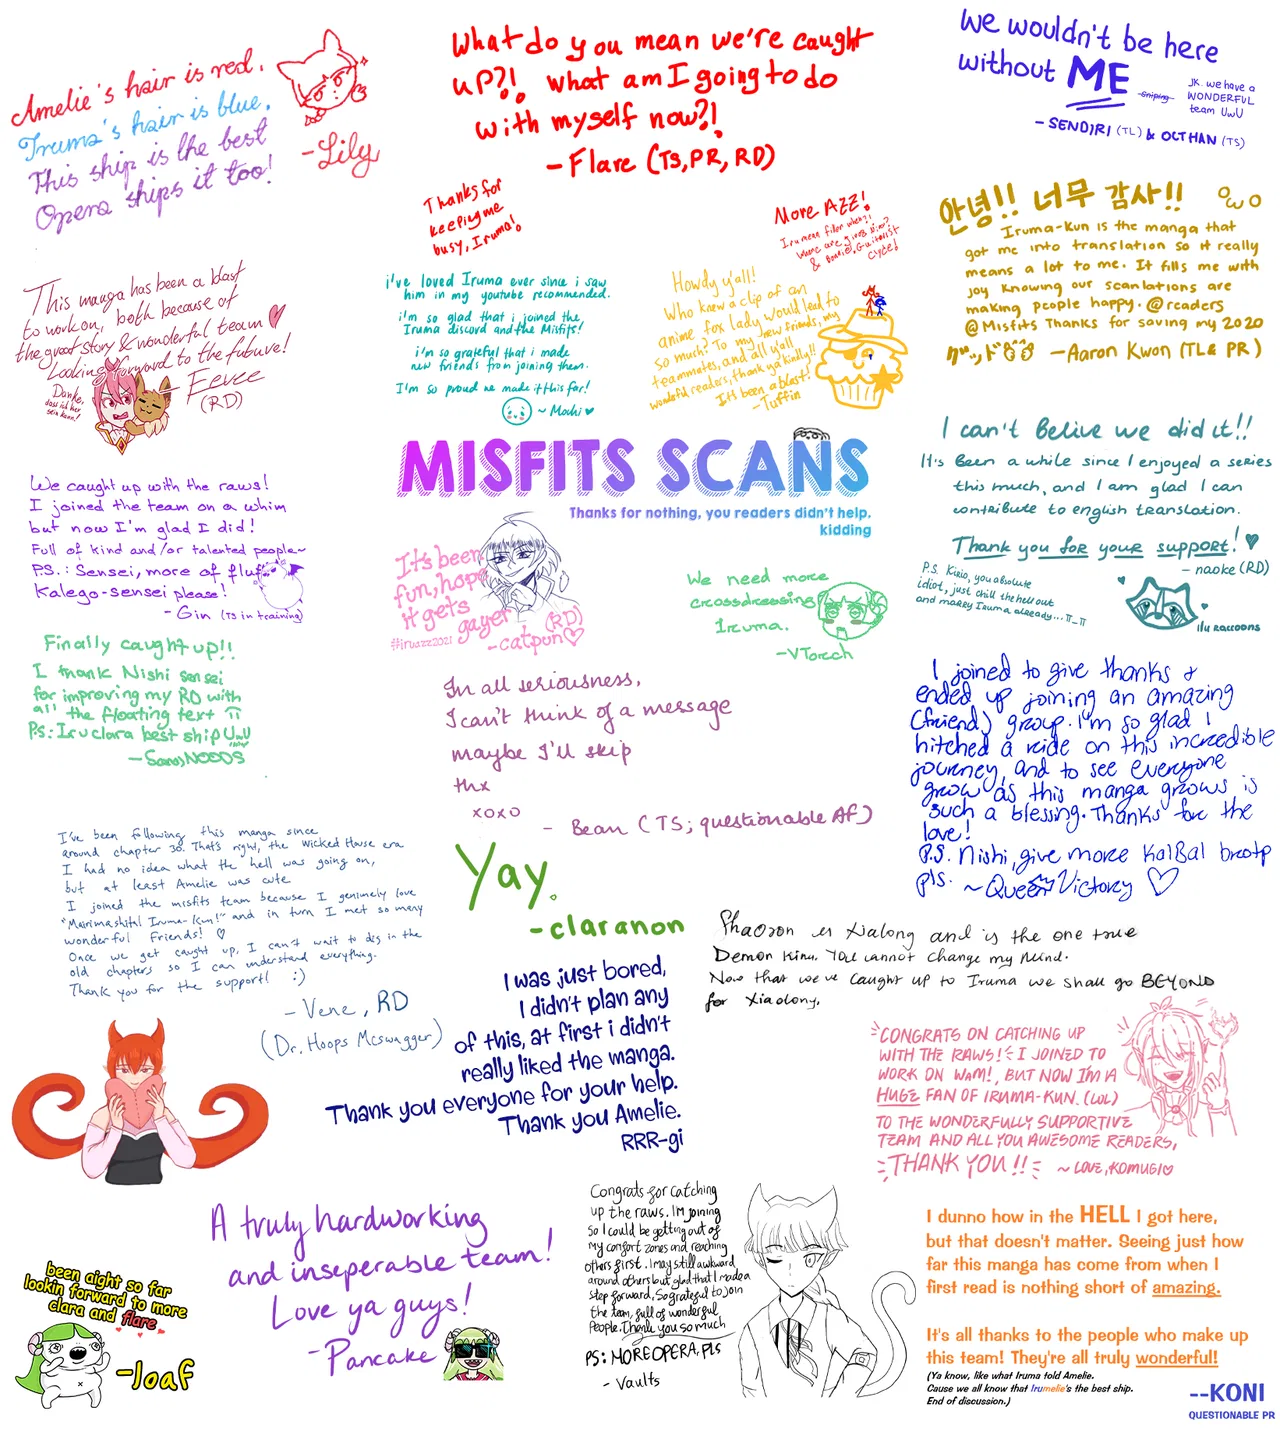 Amelie's hair is red.
Iruma's hair is blue.
This ship is the best
Opera ships it too!
-Lily
What do you mean we're caught
up?!, what am I going to do
with myself now?!
- Flare (TS, PR, RD)
Thanks for
keeping me
busy, Iruma!
More AZZ!
Irumean filler when?!
Where are gloves
& Bonnies, Guitarist
Clyde!
We wouldn't be here
without ME
-Sniping-
JK. we have a
WONDERFUL
team UwU
- SENDIRI (TL) & OCTHAN (TS)
안녕!! 너무 감사!! OωO
Iruma-Kun is the manga that
got me into translation so it really
means a lot to me. It fills me with
joy knowing our scanlations are
making people happy. @readers
@Misfits Thanks for saving my 2020
グッド —Aaron Kwon (TL & PR)
This manga has been a blast
to work on, both because of
the great story & wonderful team ♥
Looking forward to the future!
Danke,
dass ich hier
sein kann!
- Eevee
(RD)
i've loved Iruma ever since i saw
him in my youtube recommended.
i'm so glad that i joined the
Iruma discord and the Misfits!
i'm so grateful that i made
new friends from joining them.
I'm so proud we made it this far!
~ Mochi ♥
Howdy y'all!
Who knew a clip of an
anime fox lady would lead to
so much? To my new friends, my
teammates, and all y'all
wonderful readers, thank ya kindly!!
It's been a blast!
-Tuffin
MISFITS SCANS
Thanks for nothing, you readers didn't help.
kidding
I can't Belive we did it!!
It's Been a while since I enjoyed a series
this much, and I am glad I can
contribute to english translation.
Thank you for your support! ♥
- naoke (RD)
P.S. Kirio, you absolute
idiot, just chill the hell out
and marry Iruma already... π_π
ilu raccoons
We caught up with the raws!
I joined the team on a whim
but now I'm glad I did!
Full of kind and/or talented people~
P.S.: Sensei, more of fluffy
Kalego-sensei please!
- Gin (TS in training)
It's been
fun, hope
it gets
gayer
#iruazz2021
(RD)
-catpun♡
We need more
crossdressing
Iruma.
-VTorch
Finally caught up!!
I thank Nishi sensei
for improving my RD with
all the floating text π
PS: Iruclara best ship UwU
—SansyNOODS
In all seriousness,
I can't think of a message
maybe I'll skip
thx
xoxo
- Bean (TS; questionable AF)
I joined to give thanks &
ended up joining an amazing
(friend) group. I'm so glad I
hitched a ride on this incredible
journey, and to see everyone
grow as this manga grows is
such a blessing. Thanks for the
love!
P.S. Nishi, give more KalBal brotp
pls. ~Queen Victory ♡
I've been following this manga since
around chapter 30. That's right, the Wicked House era
I had no idea what the hell was going on,
but at least Amelie was cute
I joined the misfits team because I genimely love
"Mairimashita! Iruma-Kun!" and in turn I met so many
wonderful friends! ♡
Once we get caught up, I can't wait to dig in the
old chapters so I can understand everything.
Thank you for the support! :)
- Vene, RD
(Dr. Hoops Mcswagger)
Yay.
-claranon
Shaoron is Xialong and is the one true
Demon King. You cannot change my mind.
Now that we've caught up to Iruma we shall go BEYOND
for Xiaolong.
I was just bored,
I didn't plan any
of this, at first i didn't
really liked the manga.
Thank you everyone for your help.
Thank you Amelie.
RRR-gi
CONGRATS ON CATCHING UP
WITH THE RAWS! I JOINED TO
WORK ON WAM!, BUT NOW I'M A
HUGE FAN OF IRUMA-KUN. (LOL)
TO THE WONDERFULLY SUPPORTIVE
TEAM AND ALL YOU AWESOME READERS,
THANK YOU!! ~ LOVE, KOMUGI♡
A truly hardworking
and inseperable team!
Love ya guys!
-Pancake
been aight so far
lookin forward to more
clara and flare
-loaf
Congrats for catching
up the raws. I'm joining
so I could be getting out of
my comfort zones and reaching
others first. I may still awkward
around others but glad that I made a
step forward. So grateful to join
the team, full of wonderful
people. Thank you so much
PS: MORE OPERA, PLS
- Vaults
I dunno how in the HELL I got here,
but that doesn't matter. Seeing just how
far this manga has come from when I
first read is nothing short of amazing.
It's all thanks to the people who make up
this team! They're all truly wonderful!
(Ya know, like what Iruma told Amelie.
Cause we all know that Irumelie's the best ship.
End of discussion.)
--KONI
QUESTIONABLE PR